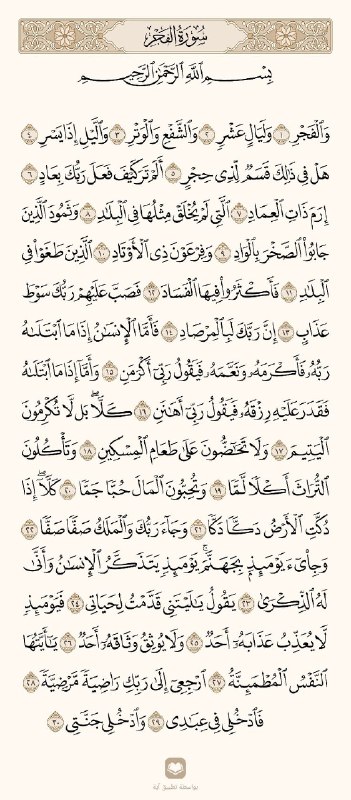 سُورَةُ الفَجْرِ
بِسْمِ اللَّهِ الرَّحْمَٰنِ الرَّحِيمِ
وَالْفَجْرِ ١ وَلَيَالٍ عَشْرٍ ٢ وَالشَّفْعِ وَالْوَتْرِ ٣ وَاللَّيْلِ إِذَا يَسْرِ ٤
هَلْ فِي ذَٰلِكَ قَسَمٌ لِّذِي حِجْرٍ ٥ أَلَمْ تَرَ كَيْفَ فَعَلَ رَبُّكَ بِعَادٍ ٦
إِرَمَ ذَاتِ الْعِمَادِ ٧ الَّتِي لَمْ يُخْلَقْ مِثْلُهَا فِي الْبِلَادِ ٨ وَثَمُودَ الَّذِينَ
جَابُوا الصَّخْرَ بِالْوَادِ ٩ وَفِرْعَوْنَ ذِي الْأَوْتَادِ ١٠ الَّذِينَ طَغَوْا فِي
الْبِلَادِ ١١ فَأَكْثَرُوا فِيهَا الْفَسَادَ ١٢ فَصَبَّ عَلَيْهِمْ رَبُّكَ سَوْطَ
عَذَابٍ ١٣ إِنَّ رَبَّكَ لَبِالْمِرْصَادِ ١٤ فَأَمَّا الْإِنسَانُ إِذَا مَا ابْتَلَاهُ
رَبُّهُ فَأَكْرَمَهُ وَنَعَّمَهُ فَيَقُولُ رَبِّي أَكْرَمَنِ ١٥ وَأَمَّا إِذَا مَا ابْتَلَاهُ
فَقَدَرَ عَلَيْهِ رِزْقَهُ فَيَقُولُ رَبِّي أَهَانَنِ ١٦ كَلَّا بَل لَّا تُكْرِمُونَ
الْيَتِيمَ ١٧ وَلَا تَحَاضُّونَ عَلَىٰ طَعَامِ الْمِسْكِينِ ١٨ وَتَأْكُلُونَ
التُّرَاثَ أَكْلًا لَّمًّا ١٩ وَتُحِبُّونَ الْمَالَ حُبًّا جَمًّا ٢٠ كَلَّا إِذَا
دُكَّتِ الْأَرْضُ دَكًّا دَكًّا ٢١ وَجَاءَ رَبُّكَ وَالْمَلَكُ صَفًّا صَفًّا ٢٢
وَجِايءَ يَوْمَئِذٍ بِجَهَنَّمَ يَوْمَئِذٍ يَتَذَكَّرُ الْإِنسَانُ وَأَنَّىٰ
لَهُ الذِّكْرَىٰ ٢٣ يَقُولُ يَا لَيْتَنِي قَدَّمْتُ لِحَيَاتِي ٢٤ فَيَوْمَئِذٍ
لَّا يُعَذِّبُ عَذَابَهُ أَحَدٌ ٢٥ وَلَا يُوثِقُ وَثَاقَهُ أَحَدٌ ٢٦ يَا أَيَّتُهَا
النَّفْسُ الْمُطْمَئِنَّةُ ٢٧ ارْجِعِي إِلَىٰ رَبِّكِ رَاضِيَةً مَّرْضِيَّةً ٢٨
فَادْخُلِي فِي عِبَادِي ٢٩ وَادْخُلِي جَنَّتِي ٣٠
بواسطة تطبيق آية